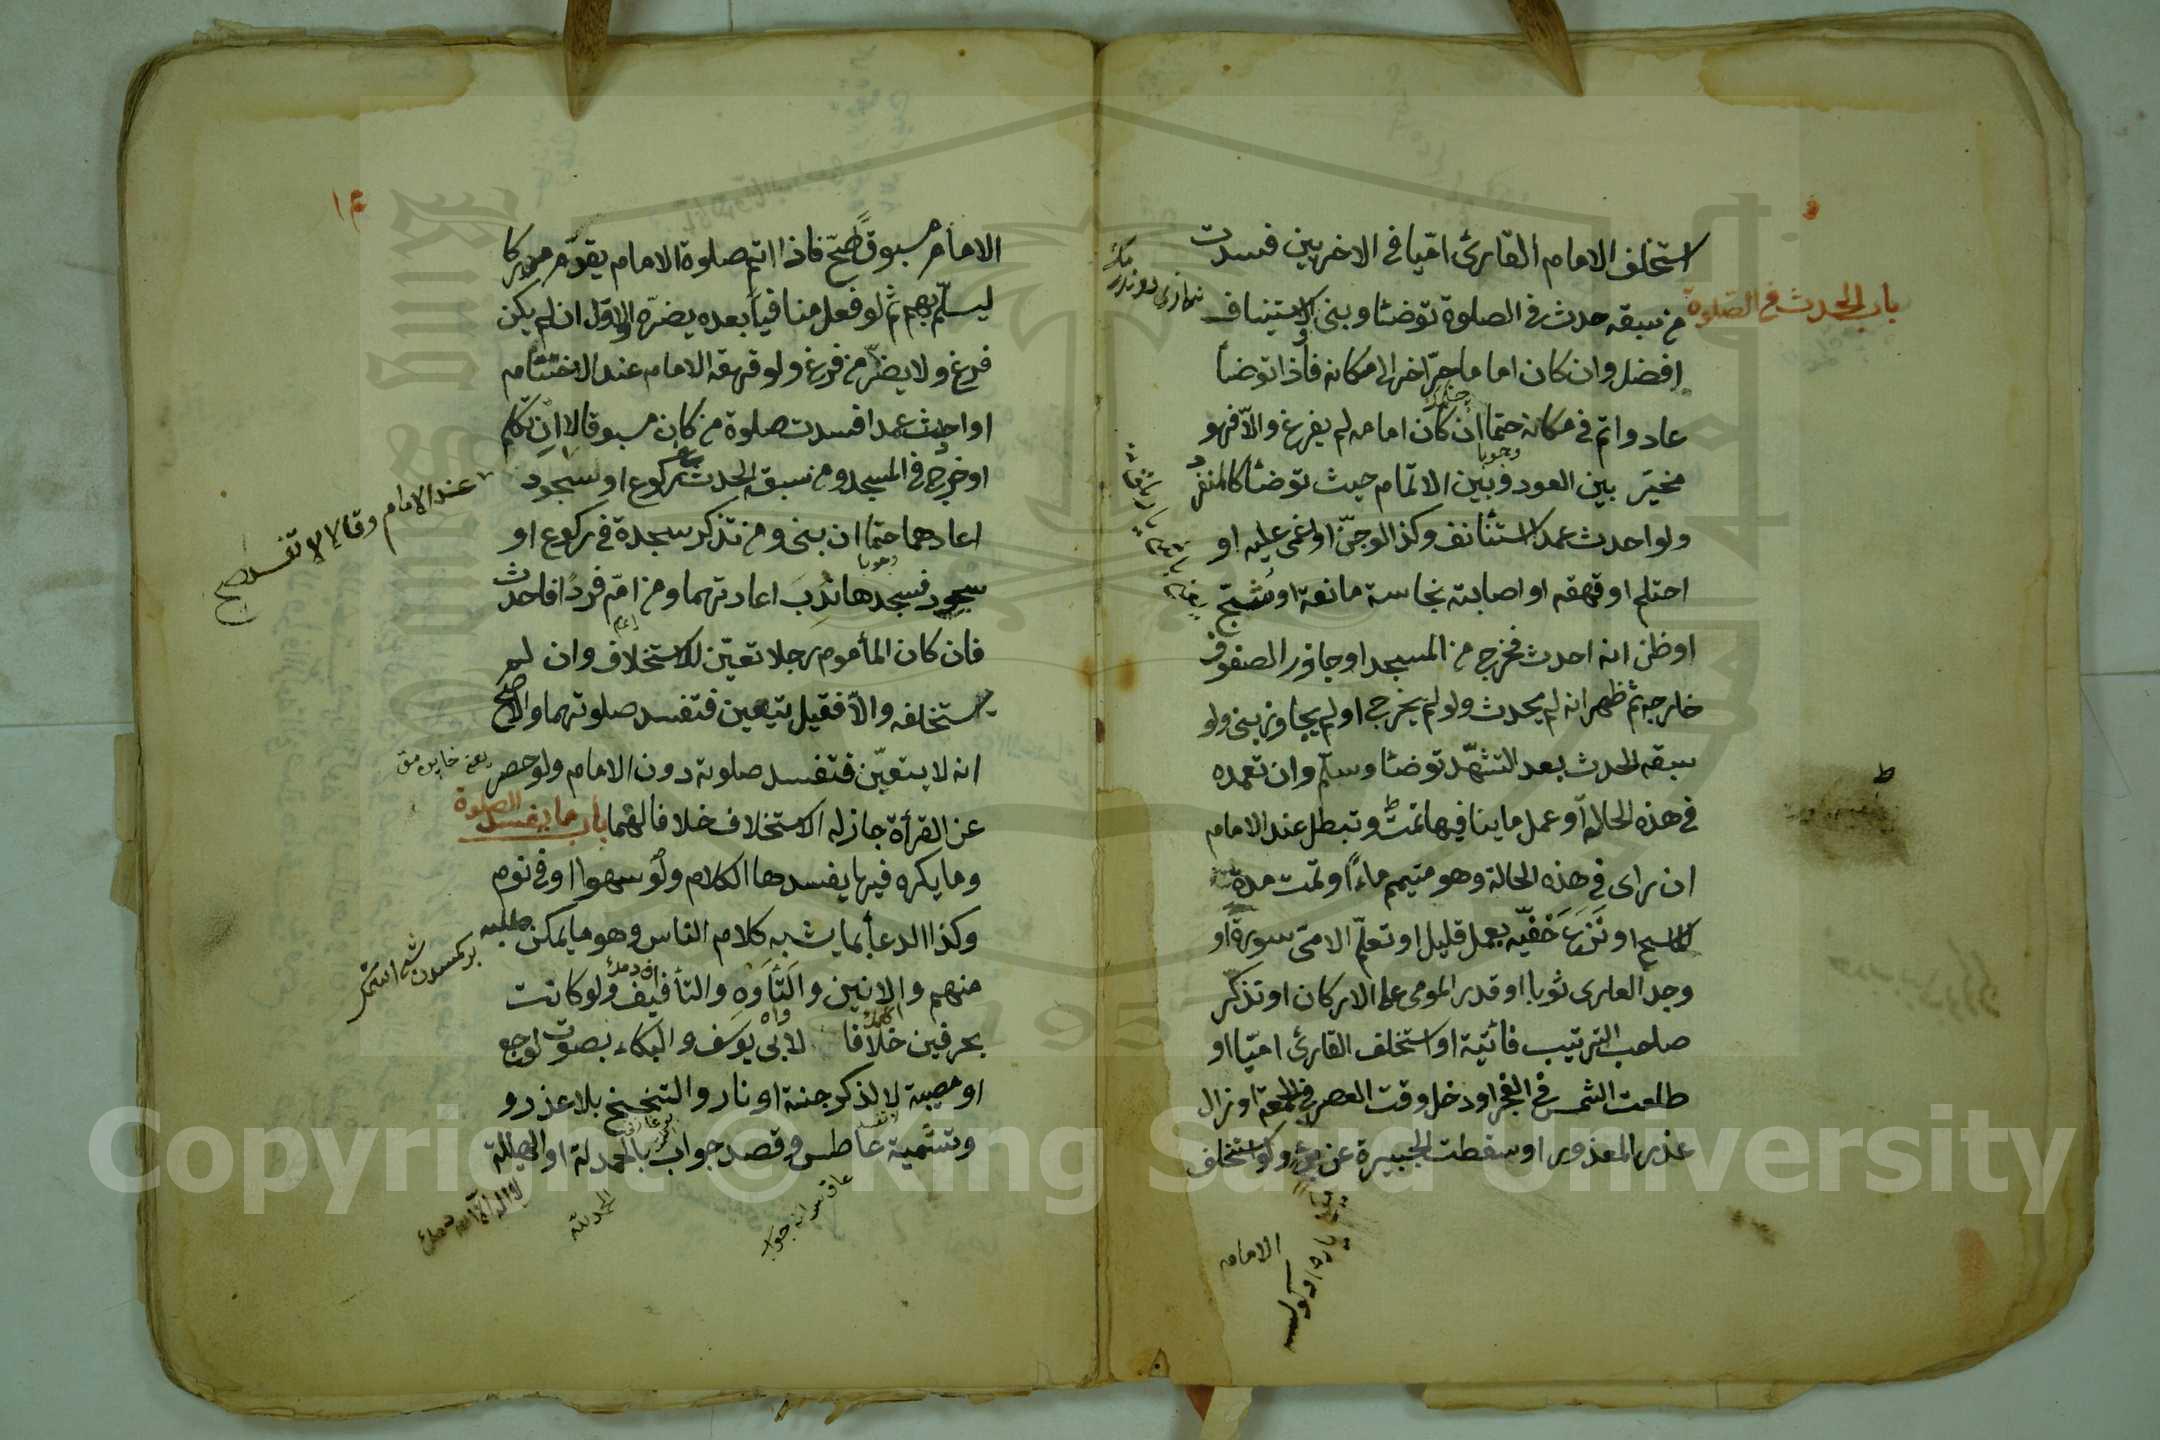 استخلف الامام القارئ اميا في الاخريين فسدت
باب الحدث في الصلوة
من سبقه حدث في الصلوة توضأ وبنى والاستيناف
افضل وان كان اماما جر اخر الى مكانه فاذا توضأ
عاد واتم في مكانه حتما ان كان امامه لم يفرغ والا فهو
وجوبا
مخير بين العود وبين الاتمام حيث توضأ كالمنفرد
ولو احدث عمدا استأنف وكذا لو جن او اغمى عليه او
احتلم او قهقه او اصابته نجاسة مانعة او شج
او ظن انه احدث فخرج من المسجد او جاوز الصفوف
خارجه ثم ظهر انه لم يحدث ولو لم يخرج او لم يجاوز بنى ولو
سبقه الحدث بعد التشهد توضأ وسلم وان تعمده
في هذه الحالة او عمل ما ينافيها تمت وتبطل عند الامام
ان رأى في هذه الحالة وهو متيمم ماء او تمت مدة
المسح او نزع خفيه بعمل قليل او تعلم الامي سورة او
وجد العاري ثوبا او قدر المومي على الاركان او تذكر
صاحب الترتيب فائتة او استخلف القارئ اميا او
طلعت الشمس في الفجر او دخل وقت العصر في الجمعة او زال
عذر المعذور او سقطت الجبيرة عن برء ولو استخلف
الامام
١٤
الامام مسبوقا صح فاذا اتم صلوة الامام يقدم مدركا
ليسلم بهم ثم لو فعل منافيا بعده يضره والاول ان لم يكن
فرغ ولا يضر من فرغ ولو قهقه الامام عند الاختتام
او احدث عمدا فسدت صلوة من كان مسبوقا لا ان تكلم
عند الامام وقالا لا تفسد صح
او خرج في المسجد ومن سبقه الحدث في ركوع او سجود
اعادهما حتما ان بنى ومن تذكر سجدة في ركوع او
وجوبا
سجود فسجدها ندب اعادتهما ومن ام فردا فاحدث
فان كان المأموم رجلا تعين للاستخلاف وان لم
يستخلفه والا فقيل يتعين فتفسد صلوتهما والاصح
انه لا يتعين فتفسد صلوته دون الامام ولو حصر
عن القرأة جاز له الاستخلاف خلافا لهما باب ما يفسد الصلوة
وما يكره فيها يفسدها الكلام ولو سهوا او في نوم
وكذا الدعأ بما يشبه كلام الناس وهو ما يمكن طلبه
منهم والانين والتأوه والتأفيف ولو كانت
بحرفين خلافا لابي يوسف والبكاء بصوت لوجع
او مصيبة لا لذكر جنة او نار والتنحنح بلا عذر و
وتشميت عاطس وقصد جواب بالحمدلة او الهيللة
الحمد لله
لا اله الا الله
Copyright © King Saud University